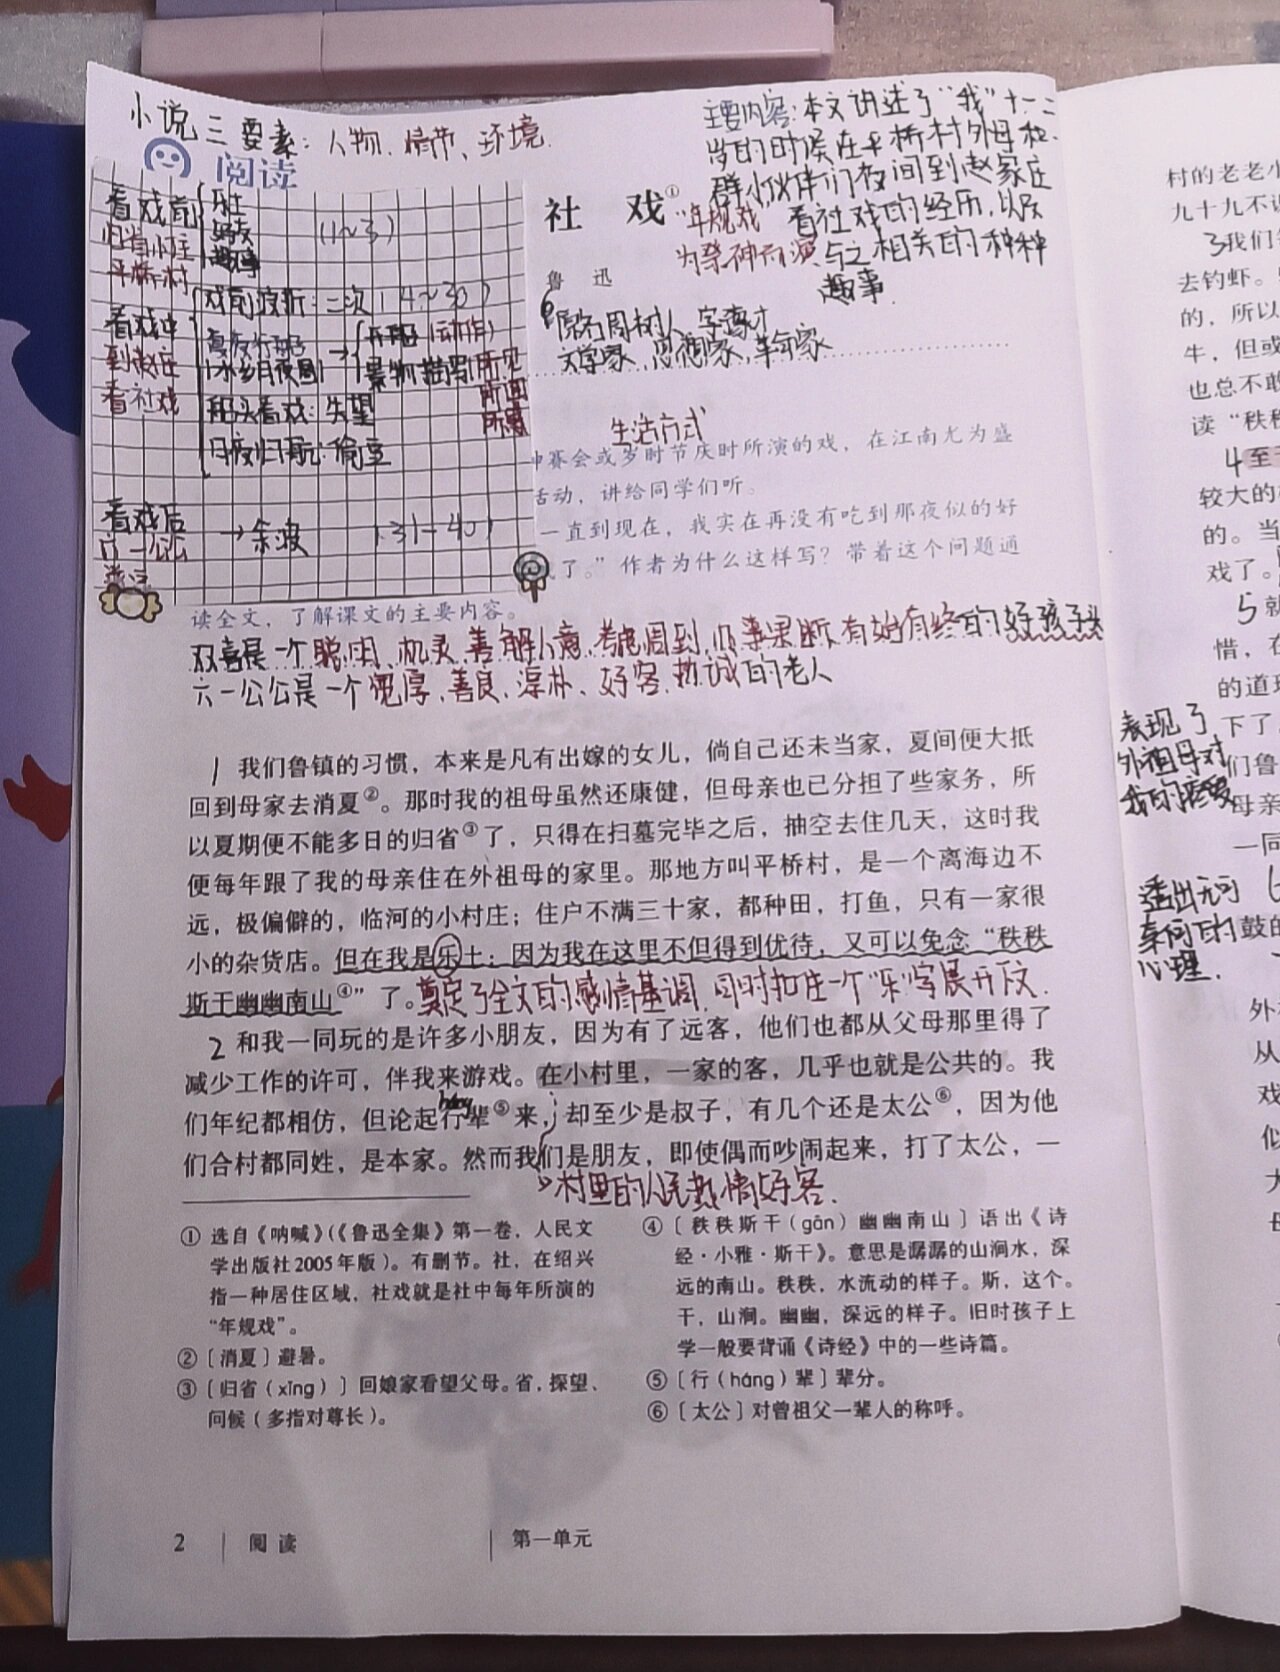 小说三要素：人物、情节、环境.
阅读
主要内容：本文讲述了“我”十一二
岁的时候在平桥村外母和
群小伙伴们夜间到赵家庄
看社戏的经历，以及
与之相关的种种
趣事.
看戏前
归省小住
平桥村
乐土
好友
趣事
(1~3)
看戏中
到赵庄
看社戏
戏前波折：二次(4~30)
夏夜行船
(水乡月夜图)→
开船(动作)
景物描写(所见
所闻
所感
船头看戏：失望
月夜归航：偷豆
看戏后
六一公公
→余波 (31-40)
社 戏①
“年规戏”
为祭神而演
鲁 迅
原名周树人，字豫才
文学家，思想家，革命家
生活方式
赛会或岁时节庆时所演的戏，在江南尤为盛
活动，讲给同学们听。
一直到现在，我实在再没有吃到那夜似的好
了。”作者为什么这样写？带着这个问题通
读全文，了解课文的主要内容。
双喜是一个聪明、机灵、善解人意、考虑周到、办事果断、有始有终的好孩子头
六一公公是一个宽厚、善良、淳朴、好客、热诚的老人
1 我们鲁镇的习惯，本来是凡有出嫁的女儿，倘自己还未当家，夏间便大抵
回到母家去消夏②。那时我的祖母虽然还康健，但母亲也已分担了些家务，所
以夏期便不能多日的归省③了，只得在扫墓完毕之后，抽空去住几天，这时我
便每年跟了我的母亲住在外祖母的家里。那地方叫平桥村，是一个离海边不
远，极偏僻的，临河的小村庄；住户不满三十家，都种田，打鱼，只有一家很
小的杂货店。但在我是乐土：因为我在这里不但得到优待，又可以免念“秩秩
斯干幽幽南山④”了。奠定了全文的感情基调，同时扣住一个“乐”字展开下文.
2 和我一同玩的是许多小朋友，因为有了远客，他们也都从父母那里得了
减少工作的许可，伴我来游戏。在小村里，一家的客，几乎也就是公共的。我
háng
们年纪都相仿，但论起行辈⑤来，却至少是叔子，有几个还是太公⑥，因为他
们合村都同姓，是本家。然而我们是朋友，即使偶而吵闹起来，打了太公，一
村里的人民热情好客.
① 选自《呐喊》（《鲁迅全集》第一卷，人民文
学出版社2005年版）。有删节。社，在绍兴
指一种居住区域，社戏就是社中每年所演的
“年规戏”。
② 〔消夏〕避暑。
③ 〔归省（xǐng）〕回娘家看望父母。省，探望、
问候（多指对尊长）。
④ 〔秩秩斯干（gān）幽幽南山〕语出《诗
经·小雅·斯干》。意思是潺潺的山涧水，深
远的南山。秩秩，水流动的样子。斯，这个。
干，山涧。幽幽，深远的样子。旧时孩子上
学一般要背诵《诗经》中的一些诗篇。
⑤ 〔行（háng）辈〕辈分。
⑥ 〔太公〕对曾祖父一辈人的称呼。
2 阅读 第一单元
村的老老小
九十九不
3我们
去钓虾。
的，所以
牛，但或
也总不敢
读“秩秩
4至
较大的
的。当
戏了。
5就
惜，在
的道
下了
们鲁
母亲
一同
鼓的
外
从
戏
似
大
母
表现了
外祖母对
我的疼爱
透出无可
奈何的
心理.